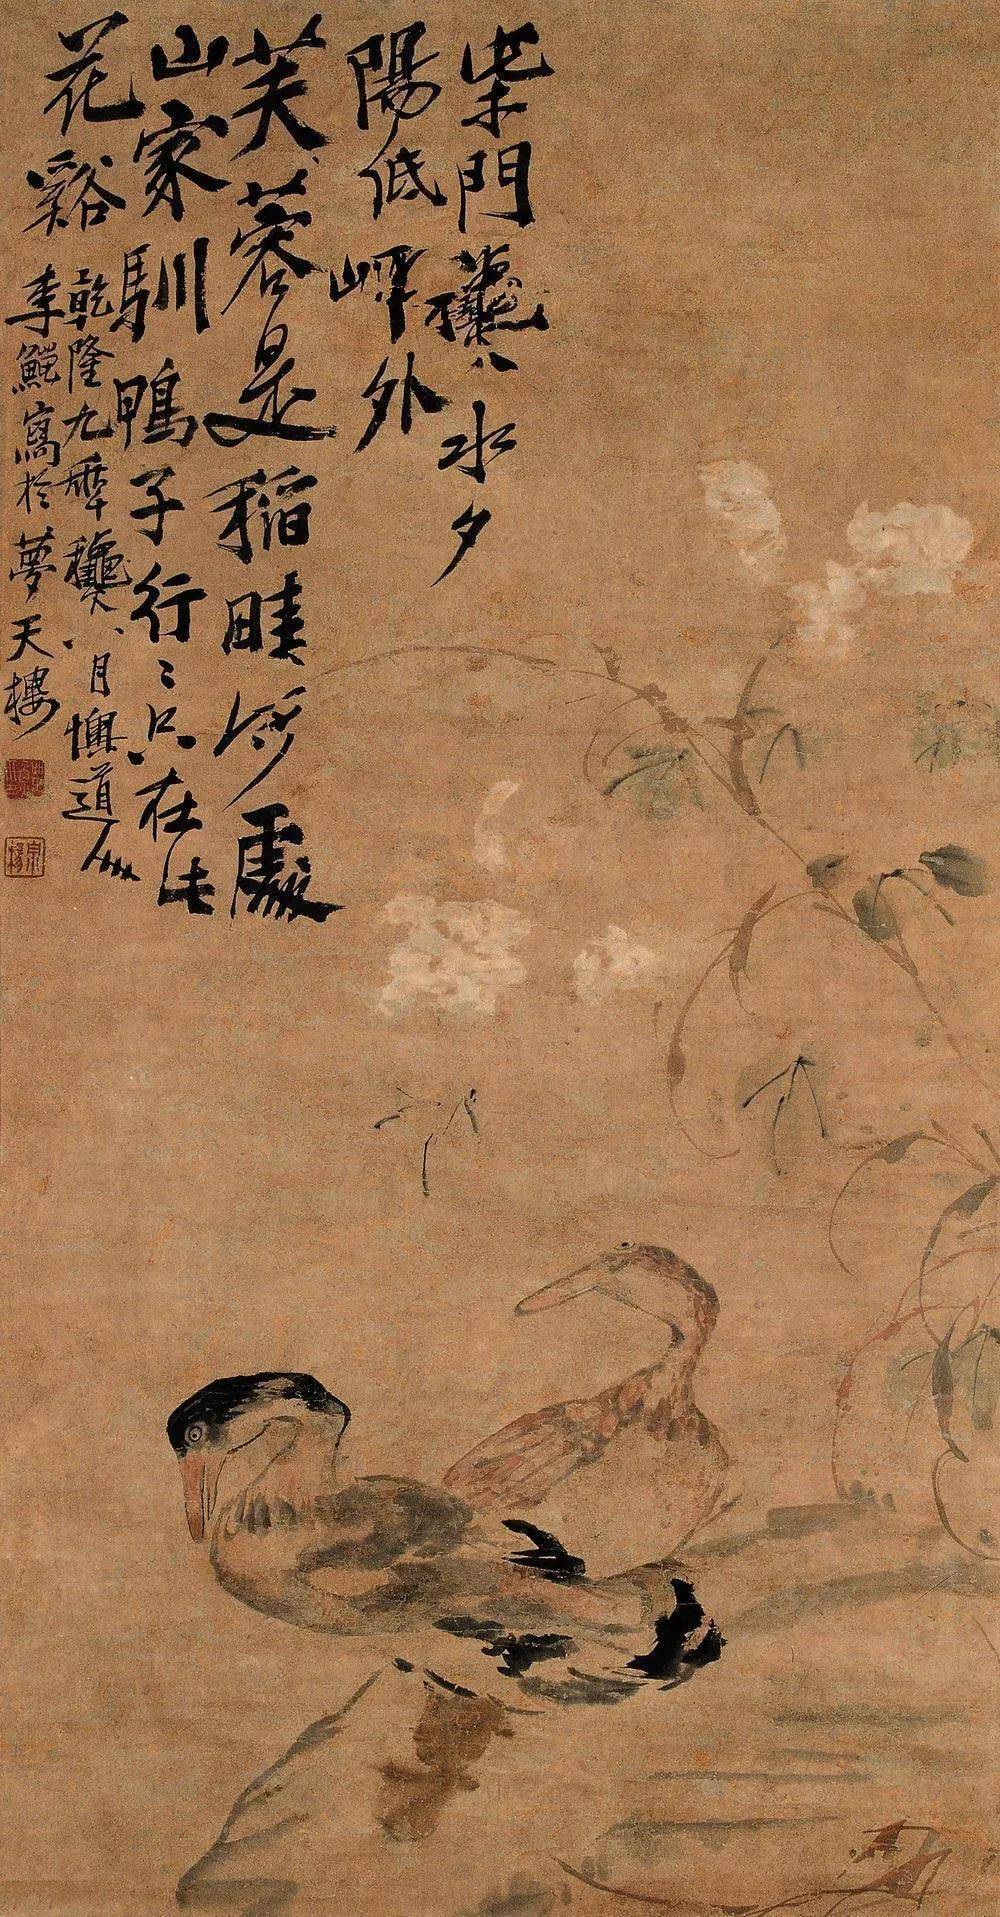 柴門穐水夕
陽低岼外
芙蓉是稻畦何處
山家馴鴨子行〻只在此
花谿
乾隆九年龝八月懊道人
李鱓寫於夢天樓